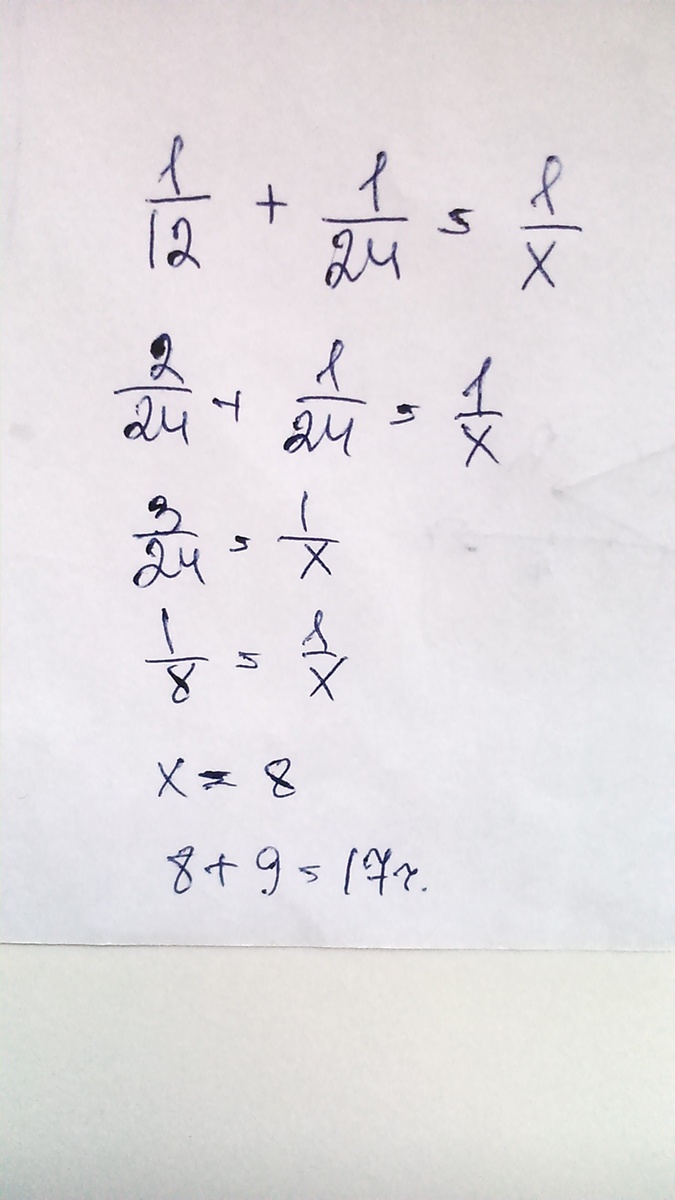 1/12 + 1/24 = 1/x
2/24 + 1/24 = 1/x
3/24 = 1/x
1/8 = 1/x
x = 8
8 + 9 = 17ч.